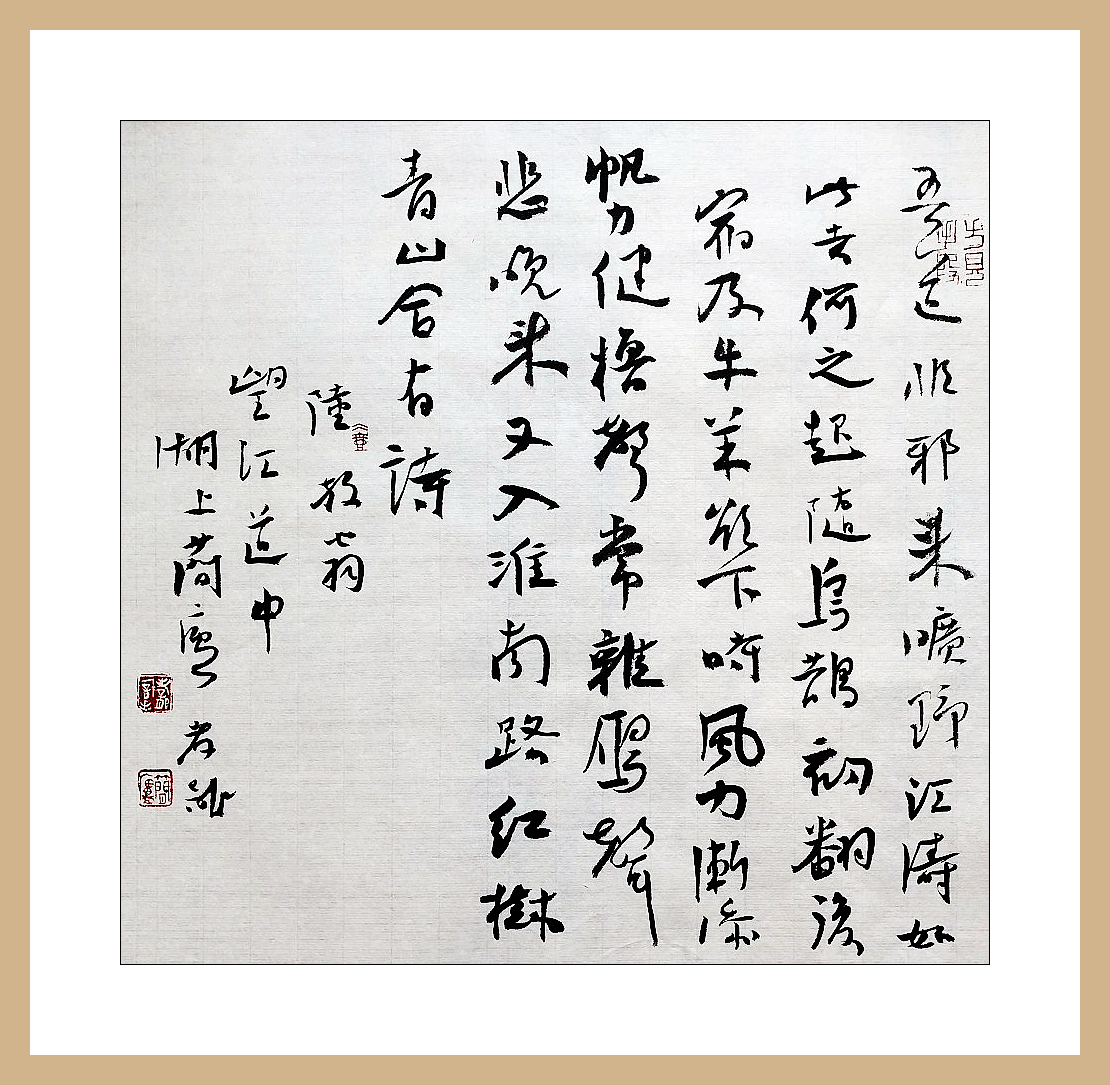 吾道非邪來曠野江濤如
此去何之起隨烏鵲初翻後
宿及牛羊欲下時風力漸添
帆力健櫓聲常雜鴈聲
悲晚來又入淮南路紅樹
青山合有詩
陸放翁
望江道中
湖上簡廬